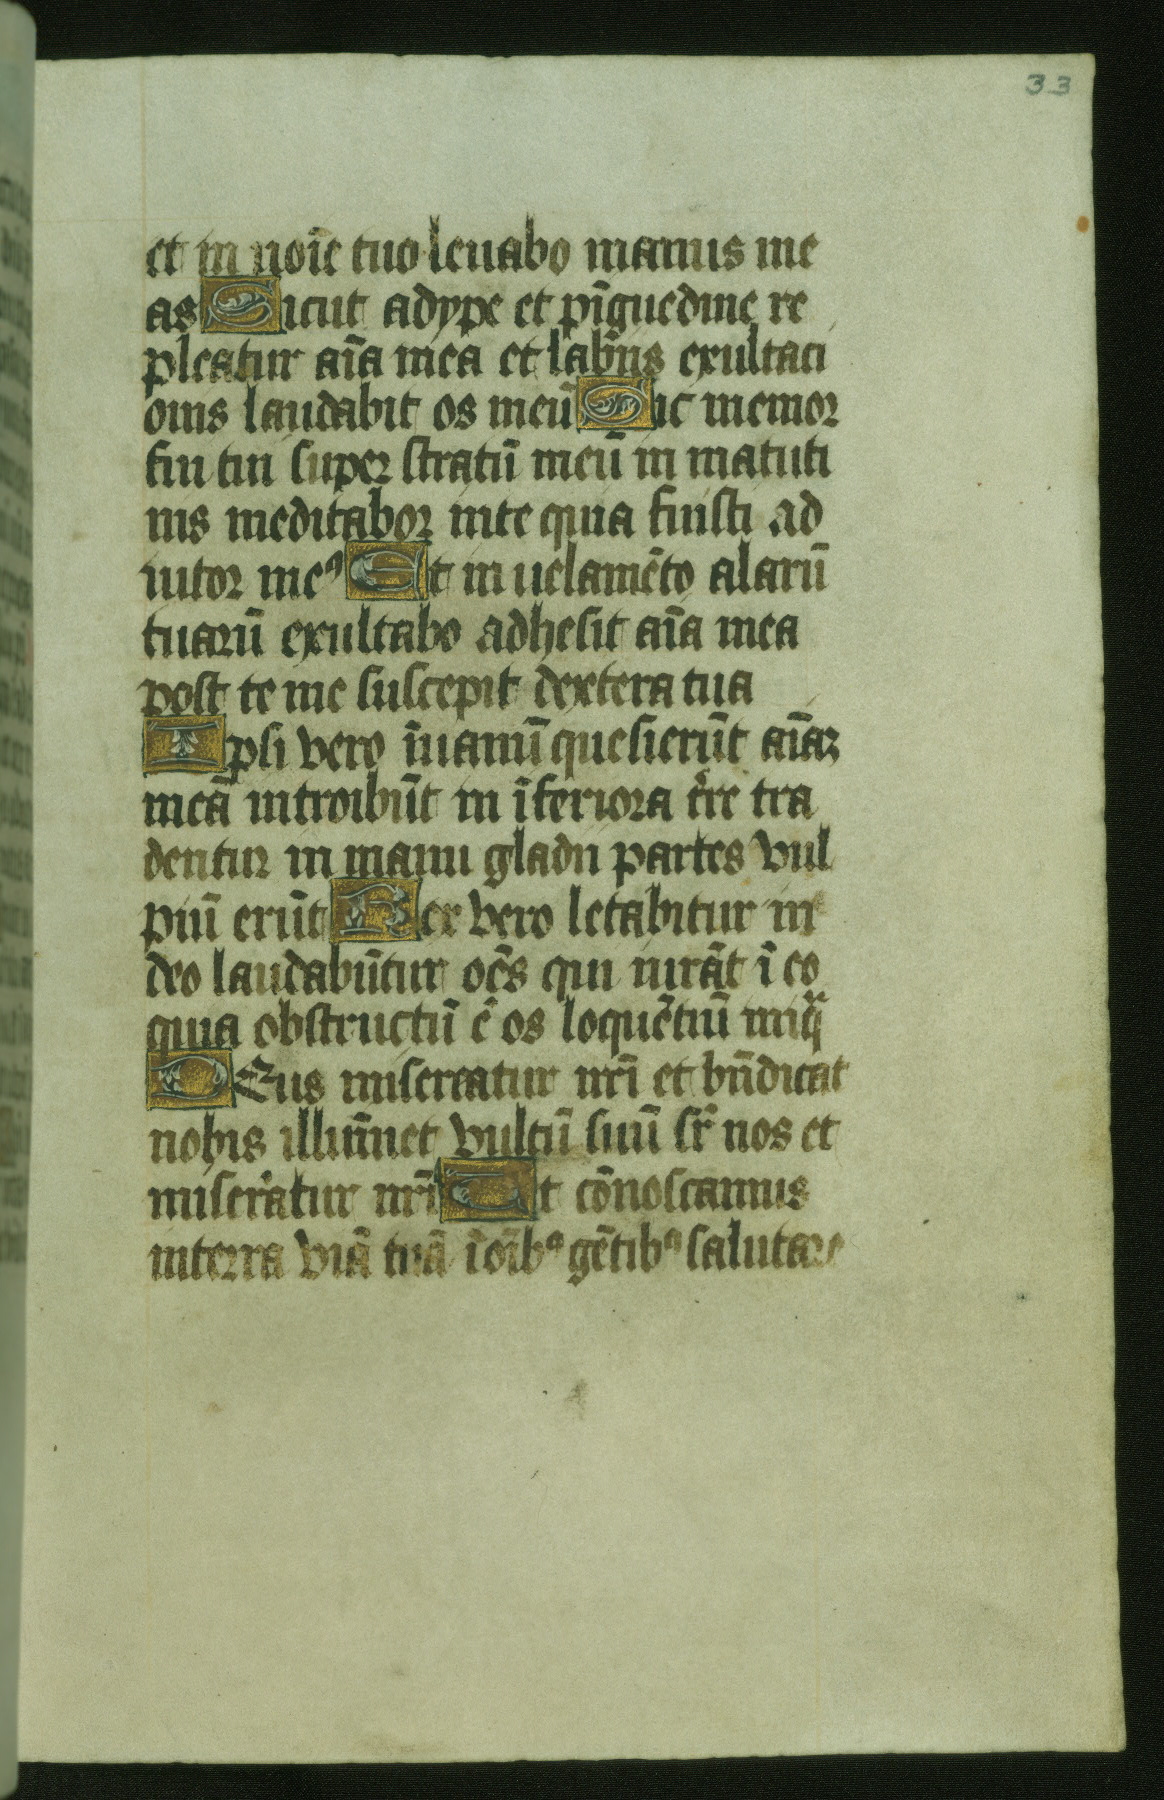 33
et in noīe tuo leuabo manus me
as Sicut adype et pīguedine re
pleatur aīa mea et labijs exultaci
onis laudabit os meū Sic memor
fui tui super stratū meū in matuti
nis meditabor inte quia fuisti ad
iutor meꝰ Et in uelamēto alarū
tuarū exultabo adhesit aīa mea
post te me suscepit dextera tua
Ipsi vero īuanū quesierūt aīaꝫ
meā introibūt in īferiora t̄re tra
dentur in manu gladii partes vul
piū erūt Rex vero letabitur in
deo laudabūtur oēs qui iurāt ī eo
quia obstructū ē os loquētiū iniqͣ
DEus misereatur nr̄i et bn̄dicat
nobis illūīnet vultū suū sr̄ nos et
misereatur nr̄i Ut cōnoscamus
interra viā tuā ī oībꝰ gētibꝰ salutare